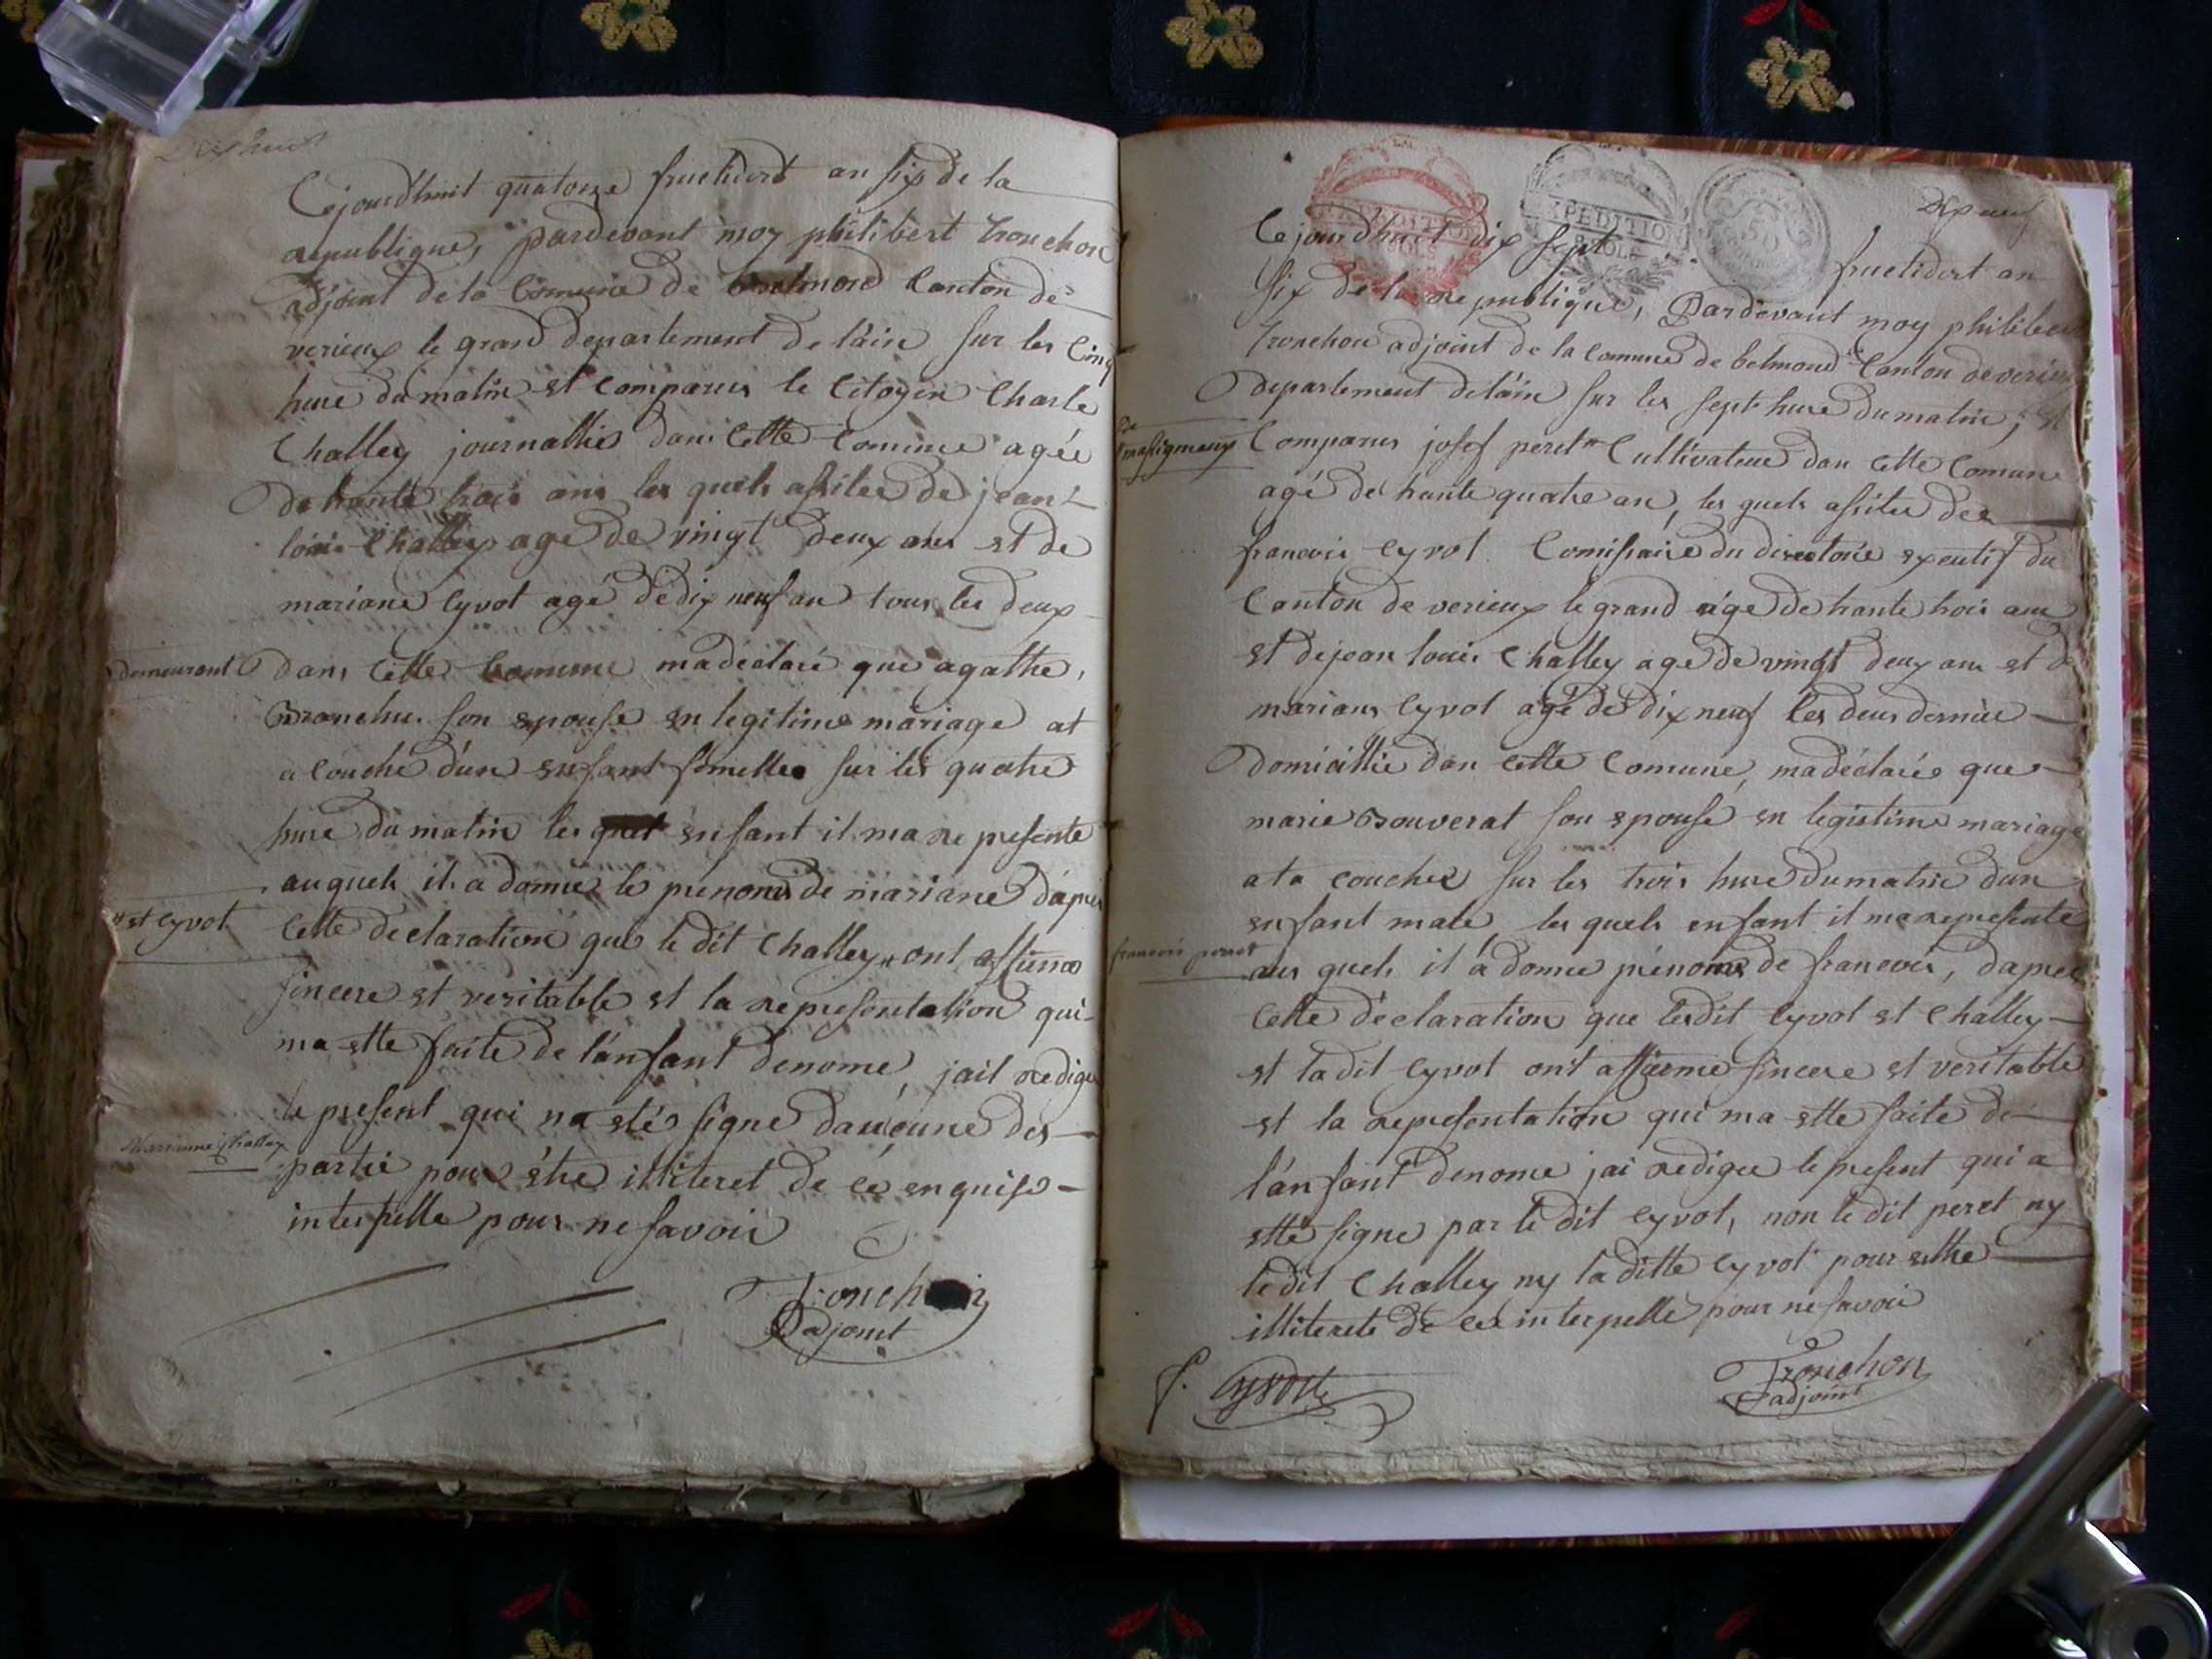 Dix huit
Cejourdhuit quatorze fructidort an six de la
republique, pardevant moy philibert tronchon
adjoint de la Comune de belmond Canton de
verieux le grand departement de l'ain sur les cinq
hure du matin et Comparus le Citoyen Charle
Challey journallié dans Cette Comune agée
de trante trois ans les quels assites de jean
louis Challey age de vingt deux ans et de
mariane Cyvot agé de dix neuf an tous les deux
demeurant
dans Cette Comune ma déclaré que agathe
son epouse en legitime mariage at
a Couché d'un enfant femelle sur les quatre
hure du matin les enfant il ma represente
auquels il a donné le prenoms de mariane d'apres
et Cyvot
Cette declaration que le dit Challey ont affirmé
sincere et veritable et la representation qui
ma ette faite de l'anfant denomé, jait redigé
le present qui na eté signé d'aucune des
Marianne Challey
partie pour être illiteret de ce enquis
interpellé pour ne savoir
Tronchon
adjoint
Dix neuf
EXPEDITION
SOLS
EXPEDITION
SOLS
50
Cejourdhuit dix sept fructidort an
six de la republique, Pardevant moy philibert
tronchon adjoint de la Comune de belmond Canton de verieu
departement de l'ain sur les sept hure du matin, et
de masigneux
Comparus josef peret Cultivateur dan Cette Comune
agé de trante quatre an, les quels assites de
francois Cyvot Comissaire du directoire exeutif du
Canton de verieux le grand age de trante trois ans
et de jean louis Challey age de vingt deux ans et de
mariane Cyvot agé de dix neuf les deux dernier
domicillié dan Cette Comune, ma déclaré que
marie Bouverat son epouse en legistime mariage
at a couche sur les trois hure du matin d'un
enfant male les quels enfant il ma represente
francois peret
aus quels il a donné prenoms de francois, d'apres
Cette déclaration que lesdit Cyvot et Challey
et ladit Cyvot ont affirmé sincere et veritable
et la representation qui ma ette faite de
l'anfant denomé jai redigé le present qui a
etté signé par le dit Cyvot, non le dit peret ny
le dit Challey ny la ditte Cyvot pour etre
illiterete de ce interpellé pour ne savoir
f. Cyvot
Tronchon
adjoint